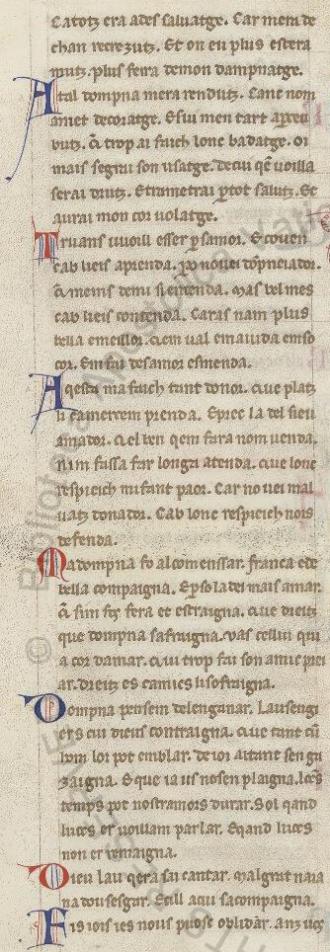 Catotz era ades saluatge. Car mem de
chan recrezutz. Et on eu plus estera
mutz. plus feira demon dampnatge.
Atal dompna mera rendutz. Canc nom
amet decoratge. Esui men tart aperceu
butz. q̃ trop ai faich lonc badatge. Oi
mais segrai son usatge. decui qẽ uoilla
serai drutz. Etrametrai ptot salutz. Et
aurai mon cor uolatge.
Truans uuoill esser p samor. Ecouen
cab lieis aprenda. po no uei dõpneiador.
q̃ meins de mi sientenda. Mas bel mes
cab lieis contenda. Caras nam plus
bella emeillor. qem ual emaiuda emso
cor. Em fai desamor esmenda.
Aqesta ma faich tant donor. que platz
li camerce m prenda. Eprec la del sieu
amador. qel ben qem fara nom uenda.
nim fassa far longa atenda. que lonc
respieich mi fant paor. Car no uei mal
uatz donador. Cab lonc respieich nois
defenda.
Madompna fo al comenssar. franca ede
bella compaigna. Epso la dei mais amar.
q̃ sim fos fera et estraigna. que dreitz
que dompna safraigna. Vas cellui qui
a cor damar. qui trop fai son amic prei
ar. dreitz es camics li sofraigna.
Dompna pensem delenganar. Lausengi
ers cui dieus contraigna. que tant cũ
hom lor pot emblar. de ioi aitant sen ga
zaigna. E que ia us nosen plaigna. loncs
temps pot nostramors durar. Sol qand
luocs er uoillam parlar. Eqand luocs
non er remaigna.
Dieu lau qera sai cantar. malgrat naia
na dousesgar. Ecill aqui sacompaigna.
Fis iois ies nouus puosc oblidar. anz uos